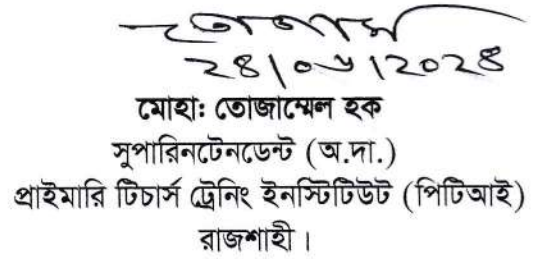 ২৪/০৬/২০২৪
মোহাঃ তোজাম্মেল হক
সুপারিনটেনডেন্ট (অ.দা.)
প্রাইমারি টিচার্স ট্রেনিং ইনস্টিটিউট (পিটিআই)
রাজশাহী।